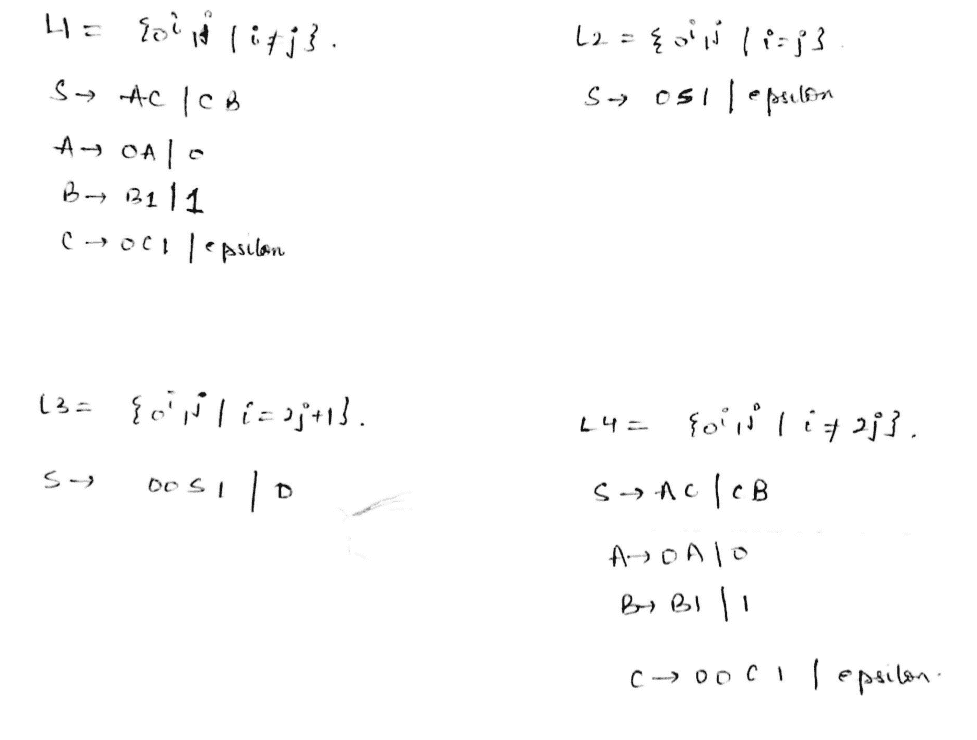 L1 = {0^i 1^j | i ≠ j}.
S → AC | CB
A → 0A | 0
B → B1 | 1
C → 0C1 | epsilon
L2 = {0^i 1^j | i = j}
S → 0S1 | epsilon
L3 = {0^i 1^j | i = 2j+1}.
S → 00S1 | 0
L4 = {0^i 1^j | i ≠ 2j}.
S → AC | CB
A → 0A | 0
B → B1 | 1
C → 00C1 | epsilon.